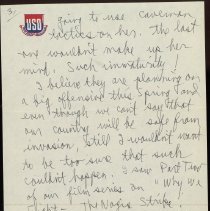 3.
USO
going to use caveman
tactics on her. The last
one wouldn't make up her
mind. Such immaturity!
I believe they are planning on
a big offensive this Spring and
even though we can't say that
our country will be safe from
invasion, still I wouldn't want
to be too sure that such
couldn't happen. I saw Part Two
of our film series on "Why We
Fight - The Nazis Strike